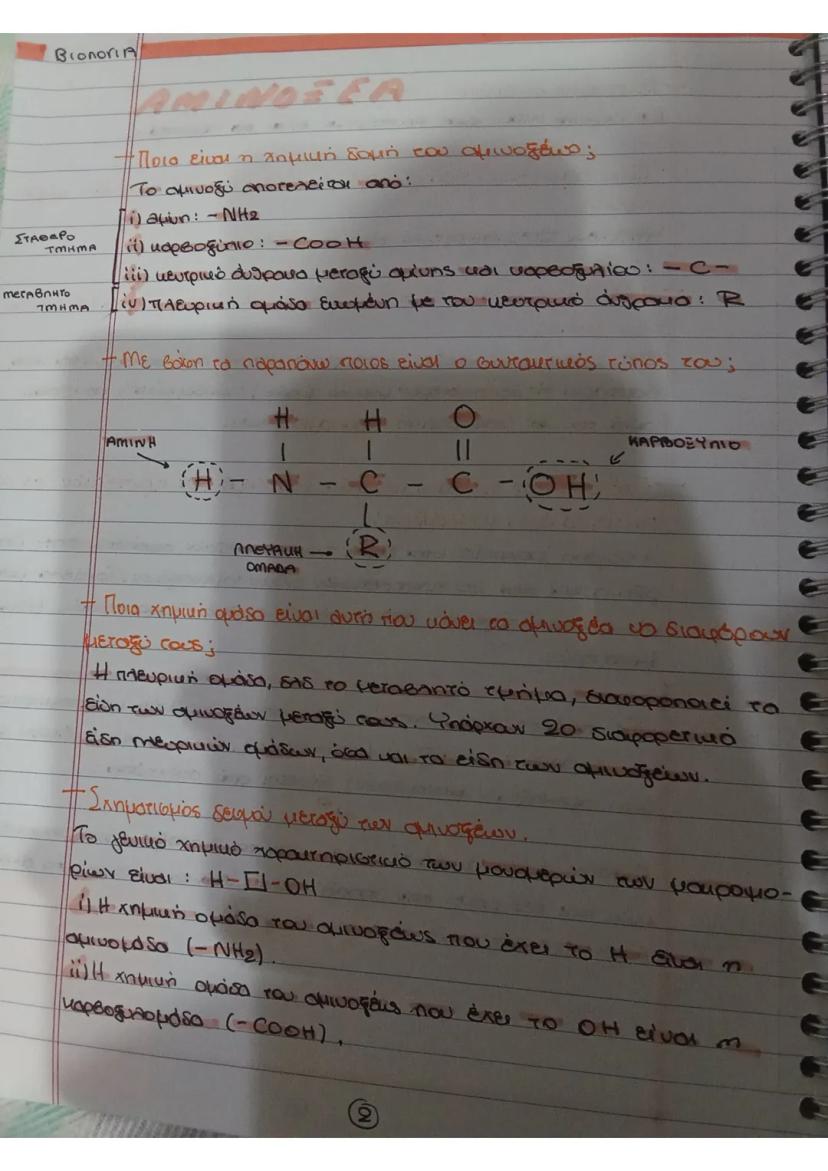 ΒΙΟΛΟΓΙΑ
ΑΜΙΝΟΞΕΑ
+ Ποια είναι η χημική δομή του αμινοξέως;
Το αμινοξύ αποτελείται από:
ΣΤΑΘΕΡΟ ΤΜΗΜΑ
i) αμίνη: -NH2
ii) καρβοξύλιο: -COOH
iii) κεντρικό άνθρακα μεταξύ αμίνης και καρβοξυλίου: - C -
ΜΕΤΑΒΛΗΤΟ ΤΜΗΜΑ
iv) πλευρική ομάδα ενωμένη με τον κεντρικό άνθρακα: R
+ Με βάση τα παραπάνω ποιος είναι ο συντακτικός τύπος του;
H H O
ΑΜΙΝΗ
ΚΑΡΒΟΞΥΛΙΟ
H - N - C - C - OH
ΠΛΕΥΡΙΚΗ ΟΜΑΔΑ → R
+ Ποια χημική ομάδα είναι αυτή που κάνει τα αμινοξέα να διαφέρουν
μεταξύ τους;
Η πλευρική ομάδα, το μεταβλητό τμήμα, διαφοροποιεί τα
είδη των αμινοξέων μεταξύ τους. Υπάρχουν 20 διαφορετικά
είδη πλευρικών ομάδων, όσα και τα είδη των αμινοξέων.
+ Σχηματισμός δεσμού μεταξύ των αμινοξέων.
Το γενικό χημικό χαρακτηριστικό των μονομερών των μακρομο-
ρίων είναι: H-[]-OH
i) Η χημική ομάδα του αμινοξέως που έχει το H είναι η
αμινομάδα (-NH2).
ii) Η χημική ομάδα του αμινοξέως που έχει το OH είναι η
καρβοξυλομάδα (-COOH).
2